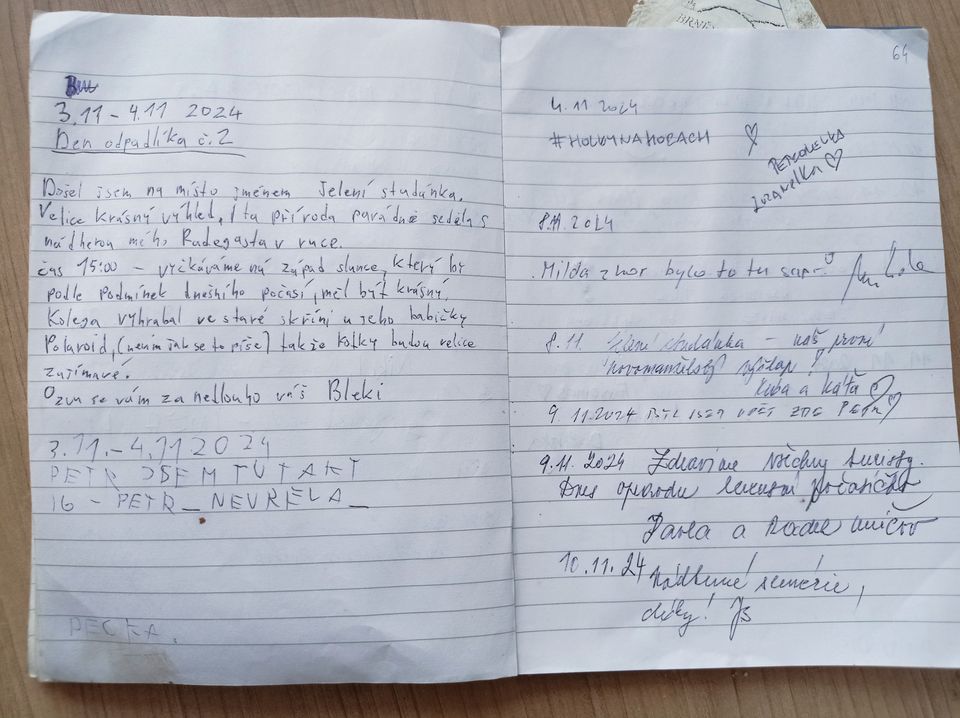 3.11 - 4.11 2024
Den odpadlíka č.2
Došel jsem na místo jménem Jelení studánka.
Velice krásný výhled, i ta příroda parádně seděla s
nádherou mého Radegasta v ruce.
čas 15:00 - vyčkáváme na západ slunce, který by
podle podmínek dnešního počasí, měl být krásný,
Kolega vyhrabal ve staré skříni u jeho babičky
Polaroid, (nevím jak se to píše) takže fotky budou velice
zajímavé.
Ozvu se vám za nedlouho váš Bleki
3.11.-4.11 2024
PETR JSEM TU TAKY
16 - PETR_NEVRELA_
PECKA.
64
4.11 2024
#HOLKYNAHORACH
PETRONELKA
8.11.2024
Milda zhor bylo to tu supr
8.11. Jelení studánka - náš první
novomanželský výšlap!
Kuba a Káťa
9.11.2024 BYL JSEM OPĚT ZDE PETR
9.11. 2024 Zdravíme všechny turisty.
Dnes opravdu luxusní počasíčko
Pavla a Radek Uničov
10.11.24
Nádherné scenérie,
díky! JS